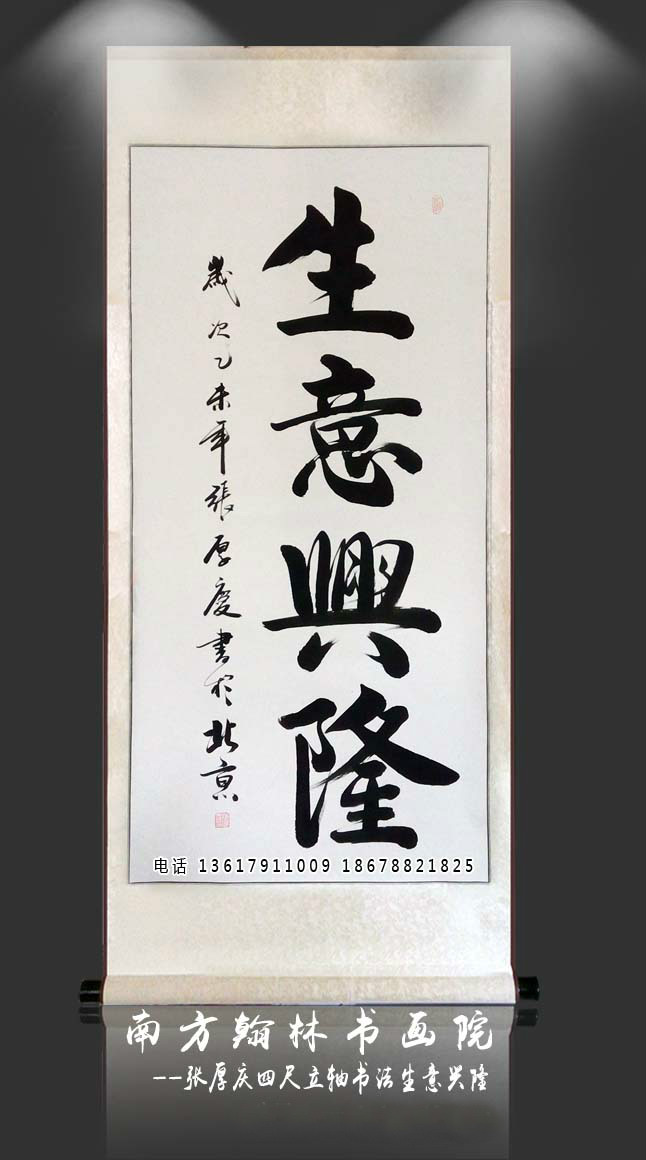 生意興隆
歲次乙未年張厚慶書於北京
电话 13617911009 18678821825
南方翰林书画院
--张厚庆四尺立轴书法生意兴隆